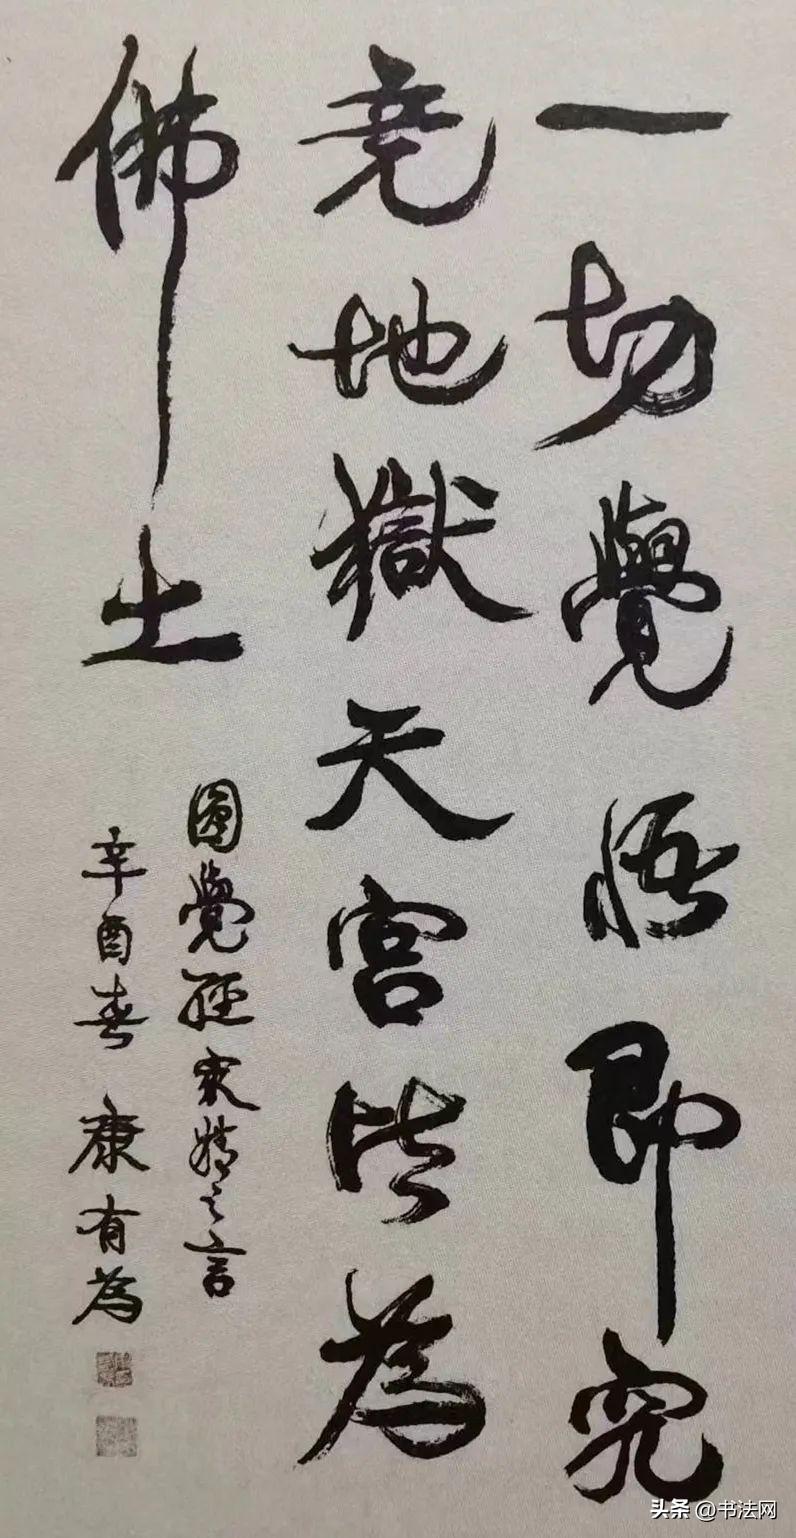 一切覺悟即究
竟地獄天宮皆為
佛土
圓覺經最精之言
辛酉春 康有為
头条 @书法网